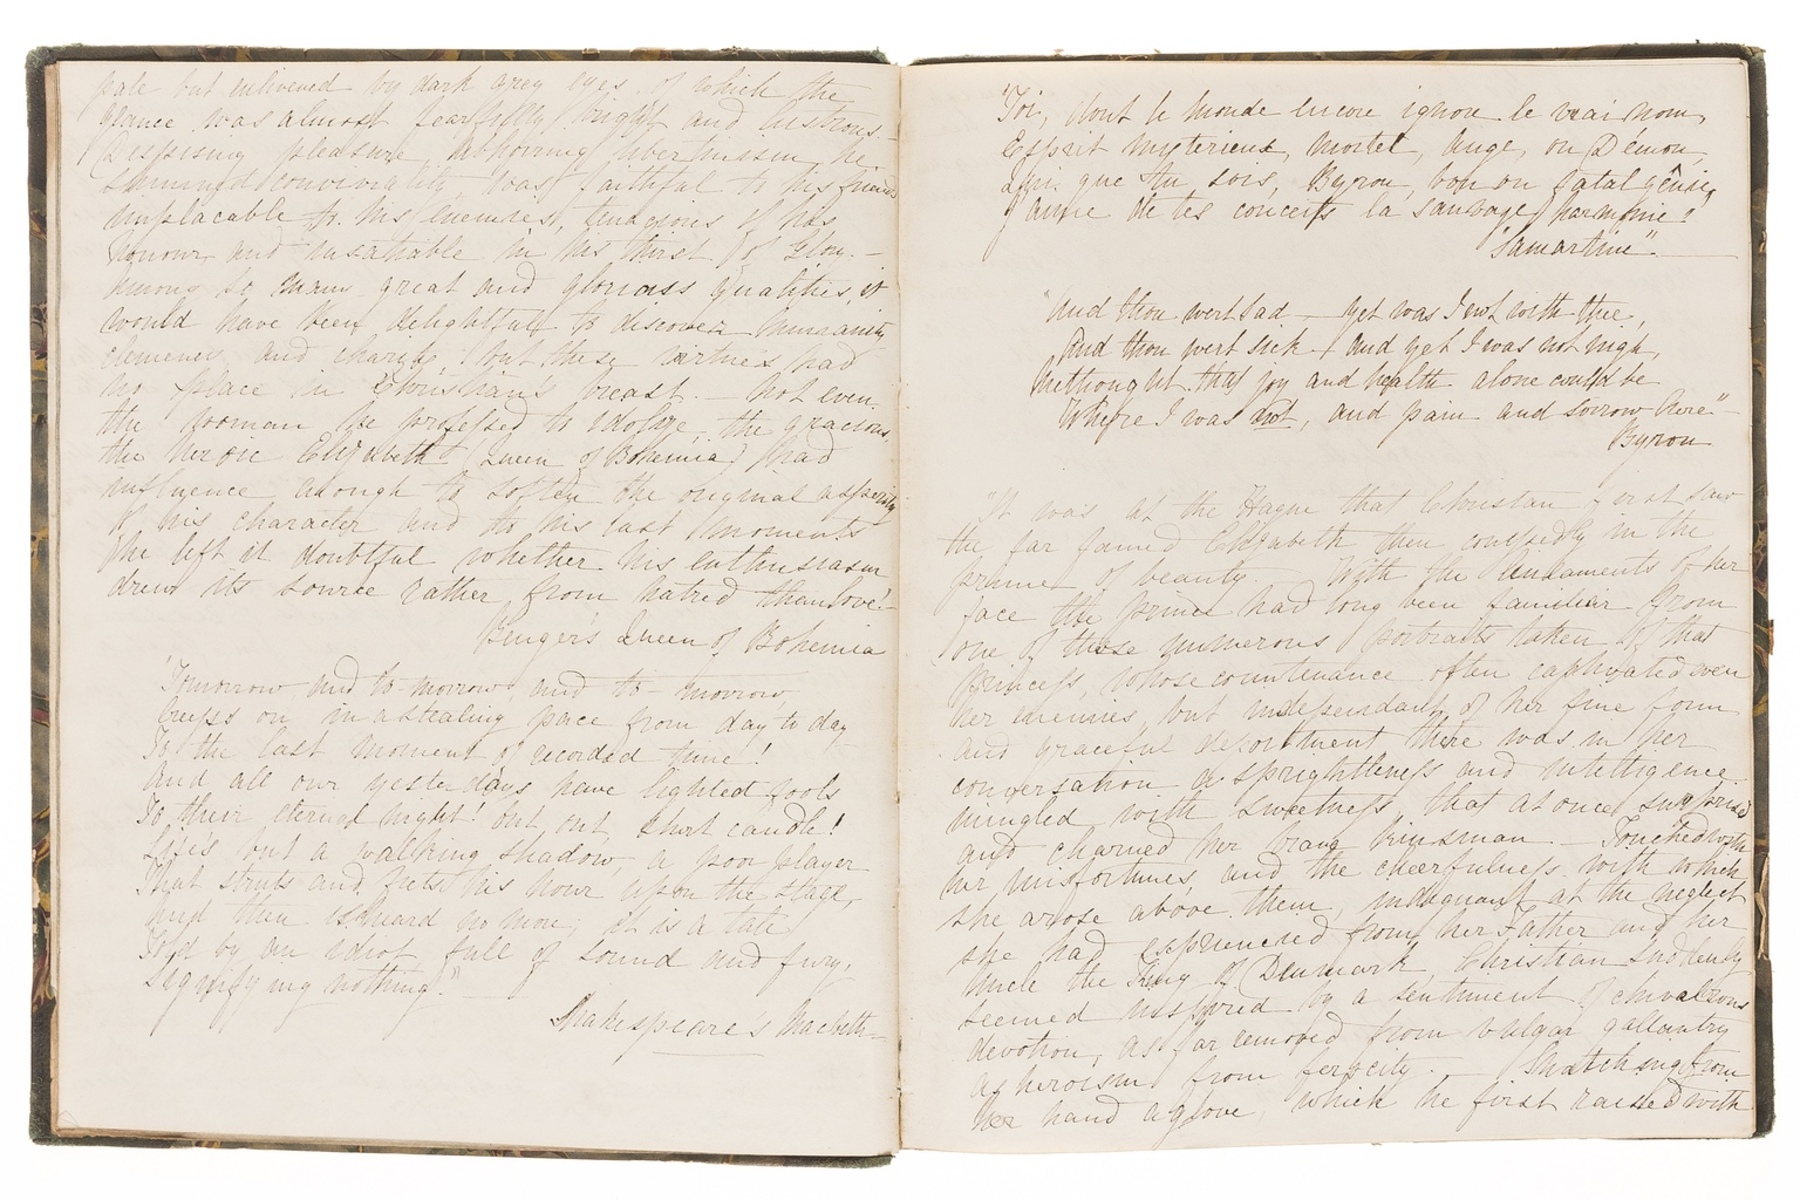 pale but enlivened by dark grey eyes, of which the
glance was almost fearfully bright and lustrous.–
Despising pleasure, abhorring libertinism, he
shunned conviviality was faithful to his friends
implacable to his enemies, tenacious of his
honour and insatiable in his thirst of Glory.–
Among so many great and glorious qualities, it
would have been delightful to discover humanity
clemency and charity, but these virtues had
no place in Christian's breast.– Not even
the woman he professed to idolize, the gracious,
the heroic Elizabeth (Queen of Bohemia) had
influence enough to soften the original asperity
of his character and to his last moments
he left it doubtful whether his enthusiasm
drew its source rather from hatred than love!–
Benger's Queen of Bohemia
"Tomorrow, and to-morrow, and to-morrow,
Creeps on in a stealing pace from day to day
To the last moment of recorded time!
And all our yesterdays have lighted fools
To their eternal night! Out, out, short candle!
Life's but a walking shadow, a poor player
That struts and frets his hour upon the stage,
And then is heard no more; it is a tale
Told by an idiot, full of sound and fury,
Signifying nothing."
Shakespeare's Macbeth–
"Toi, dont le monde encore ignore le vrai nom,
Esprit mysterieux, mortel, ange, ou Démon,
Qui que tu sois, Byron, bon ou fatal gênie,
J'aime de tes concerts la sauvage harmonie!"
"Lamartine".
"And thou wert sad – yet was I not with thee,
And thou wert sick – and yet I was not nigh,
Methought that joy and health alone could be
Where I was not, and pain and sorrow here."–
Byron
"It was at the Hague that Christian first saw
the far famed Elizabeth then confessedly in the
prime of beauty.– With the lineaments of her
face the prince had long been familiar from
one of those numerous portraits taken of that
Princess, whose countenance often captivated even
her enemies, but independant of her fine form
and graceful deportment there was in her
conversation a sprightliness and intelligence
mingled with sweetness, that at once surprised
and charmed her brave kinsman.– Touched with
her misfortunes, and the cheerfulness with which
she arose above them, indignant at the neglect
she had experienced from her Father and her
Uncle the King of Denmark, Christian suddenly
seemed inspired by a sentiment of chivalrous
devotion, as far removed from vulgar gallantry
as heroism from ferocity.– Snatching from
her hand a glove, which he first raised with